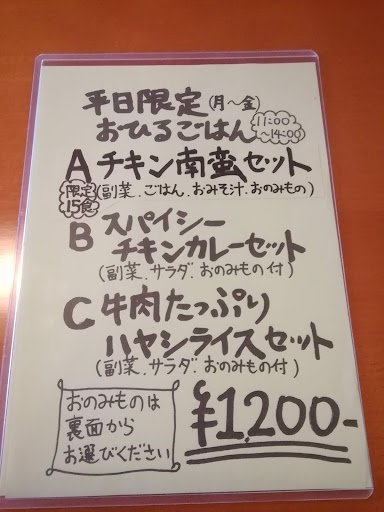 平日限定(月～金)
おひるごはん 11:00～14:00
A チキン南蛮セット
限定15食 (副菜.ごはん.おみそ汁.おのみもの)
B スパイシー
チキンカレーセット
(副菜.サラダ.おのみもの付)
C 牛肉たっぷり
ハヤシライスセット
(副菜.サラダ.おのみもの付)
おのみものは
裏面から
お選びください
¥1,200-